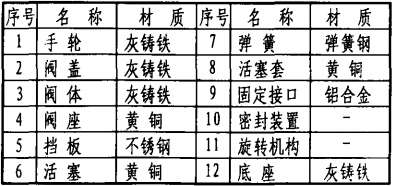 序号 名称 材质 序号 名称 材质
1 手轮 灰铸铁 7 弹簧 弹簧钢
2 阀盖 灰铸铁 8 活塞套 黄铜
3 阀体 灰铸铁 9 固定接口 铝合金
4 阀座 黄铜 10 密封装置 -
5 挡板 不锈钢 11 旋转机构 -
6 活塞 黄铜 12 底座 灰铸铁